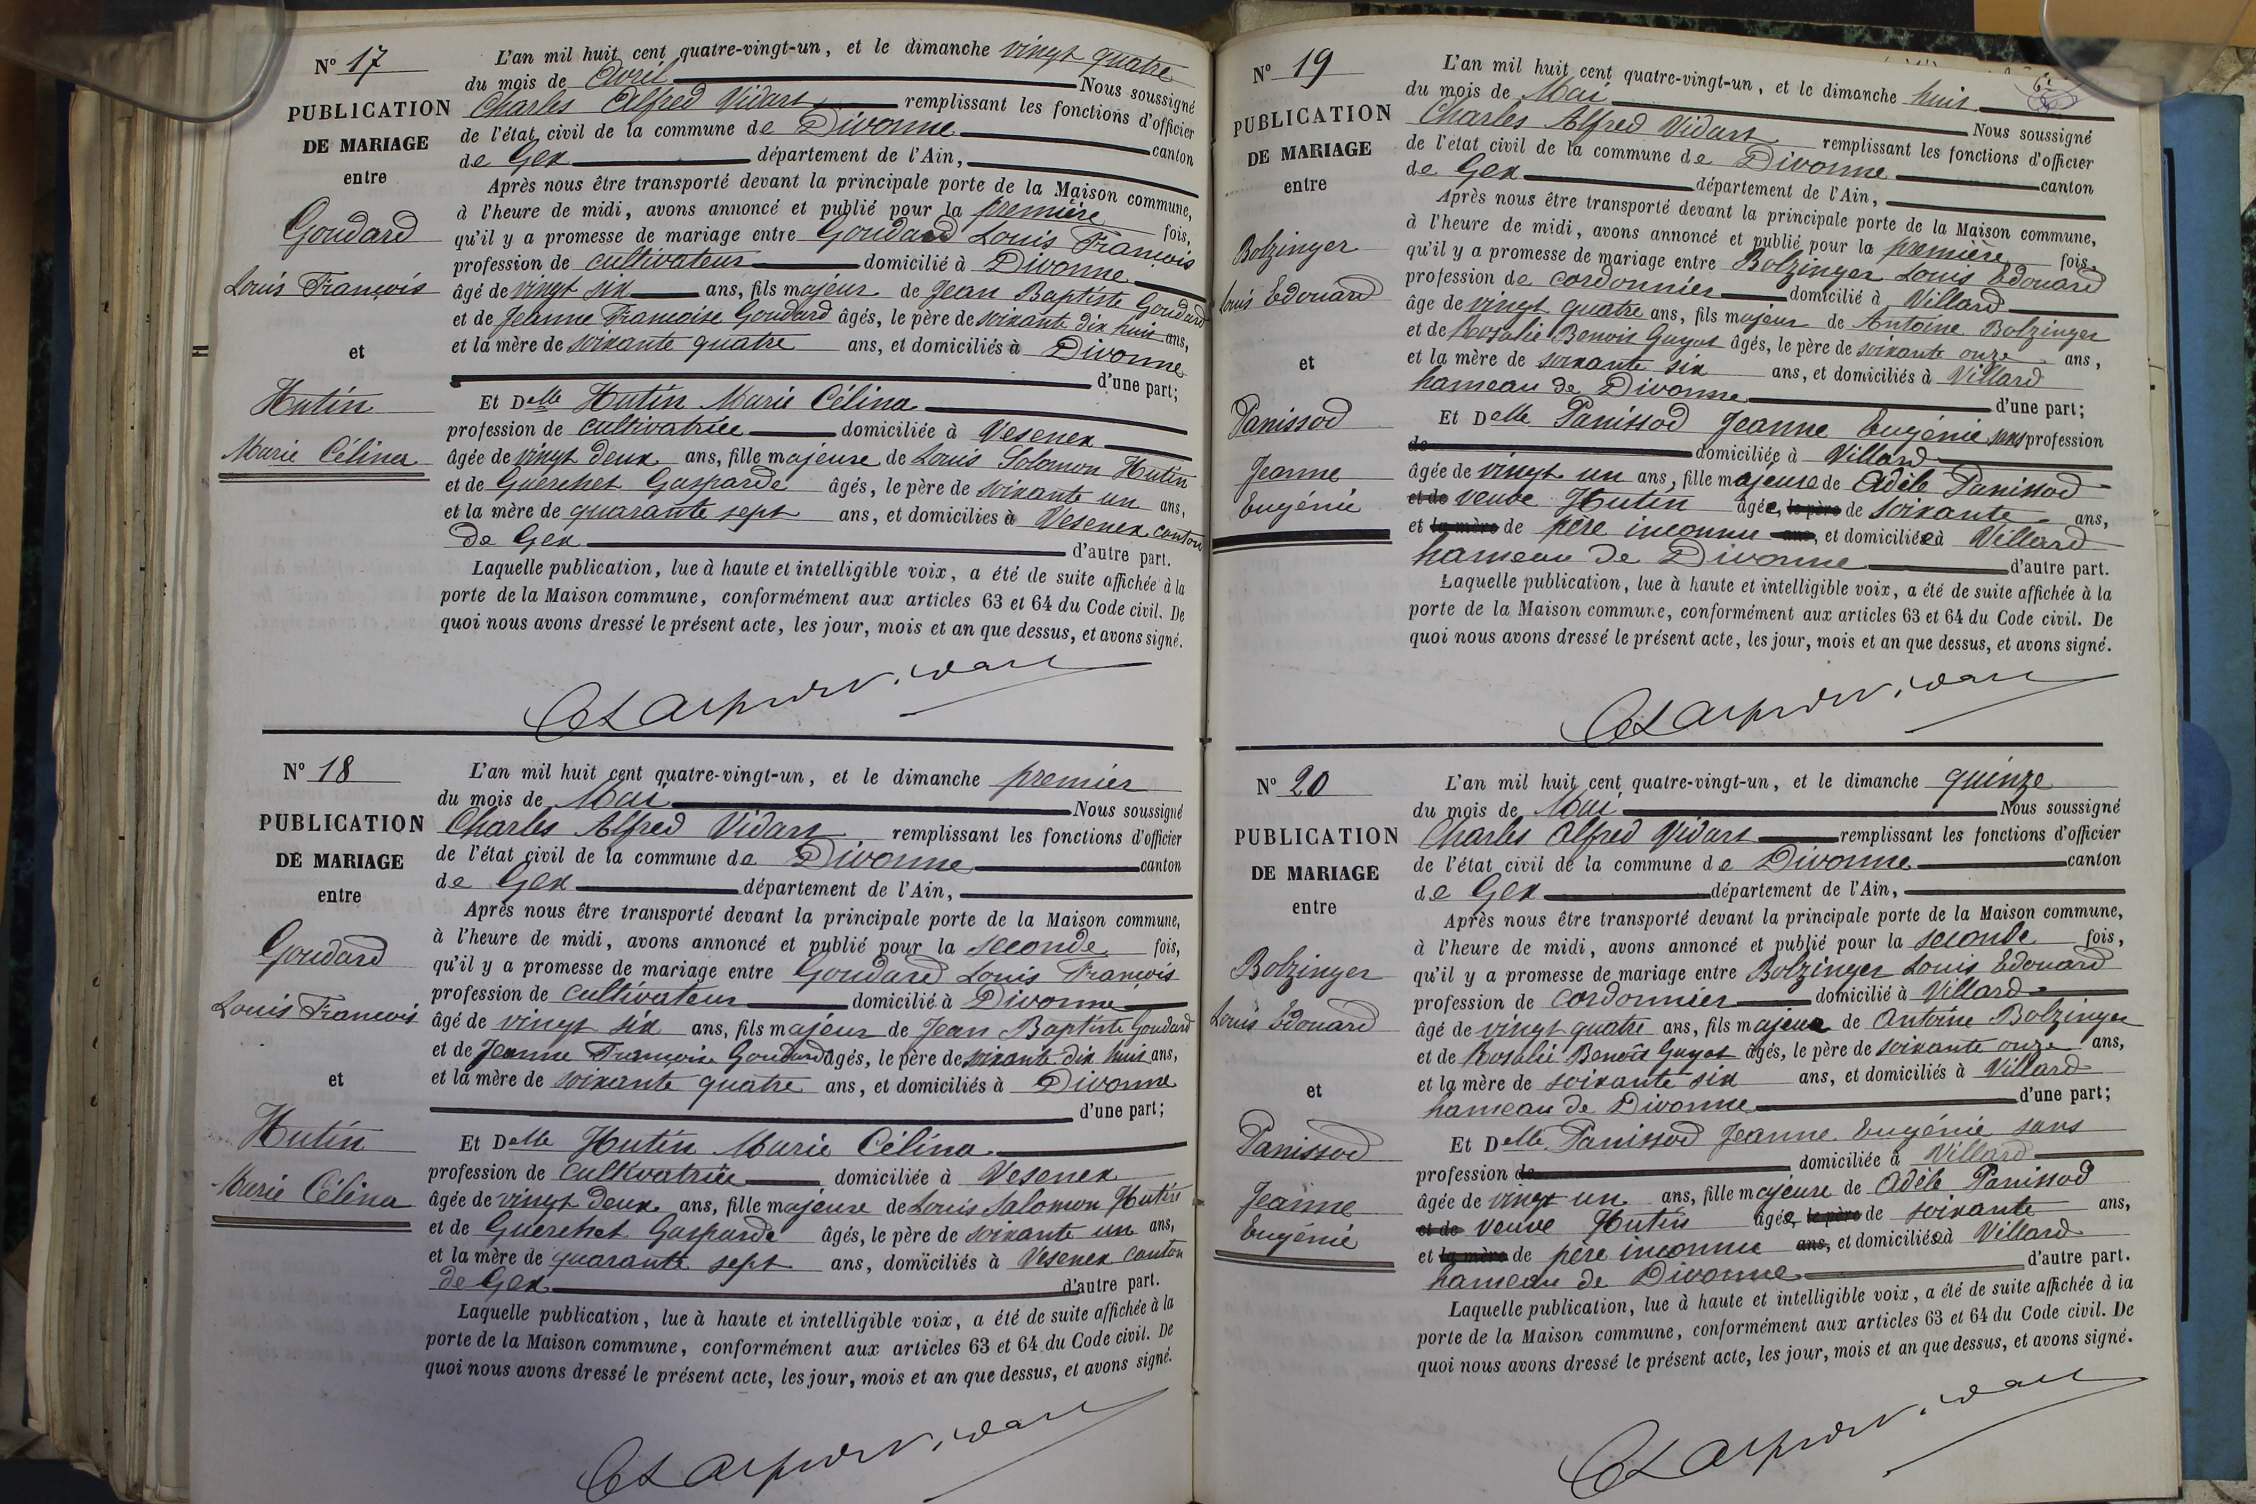 N° 17
PUBLICATION
DE MARIAGE
entre
Goudard
Louis François
et
Hutin
Marie Célina
L'an mil huit cent quatre-vingt-un, et le dimanche vingt quatre
du mois de Avril Nous soussigné
Charles Alfred Vidart remplissant les fonctions d'officier
de l'état civil de la commune de Divonne canton
de Gex département de l'Ain,
Après nous être transporté devant la principale porte de la Maison commune,
à l'heure de midi, avons annoncé et publié pour la première fois,
qu'il y a promesse de mariage entre Goudard Louis François
profession de cultivateur domicilié à Divonne
âgé de vingt six ans, fils majeur de Jean Baptiste Goudard
et de Jeanne Françoise Goudard âgés, le père de soixante dix huit ans,
et la mère de soixante quatre ans, et domiciliés à Divonne
d'une part;
Et Delle Hutin Marie Célina
profession de cultivatrice domiciliée à Vesenex
âgée de vingt deux ans, fille majeure de Louis Solomon Hutin
et de Guerchet Gasparde âgés, le père de soixante un ans,
et la mère de quarante sept ans, et domiciliés à Vesenex canton
de Gex d'autre part.
Laquelle publication, lue à haute et intelligible voix, a été de suite affichée à la
porte de la Maison commune, conformément aux articles 63 et 64 du Code civil. De
quoi nous avons dressé le présent acte, les jour, mois et an que dessus, et avons signé.
N° 18
PUBLICATION
DE MARIAGE
entre
Goudard
Louis François
et
Hutin
Marie Célina
L'an mil huit cent quatre-vingt-un, et le dimanche premier
du mois de Mai Nous soussigné
Charles Alfred Vidart remplissant les fonctions d'officier
de l'état civil de la commune de Divonne canton
de Gex département de l'Ain,
Après nous être transporté devant la principale porte de la Maison commune,
à l'heure de midi, avons annoncé et publié pour la seconde fois,
qu'il y a promesse de mariage entre Goudard Louis François
profession de cultivateur domicilié à Divonne
âgé de vingt six ans, fils majeur de Jean Baptiste Goudard
et de Jeanne Françoise Goudard âgés, le père de soixante dix huit ans,
et la mère de soixante quatre ans, et domiciliés à Divonne
d'une part;
Et Delle Hutin Marie Célina
profession de cultivatrice domiciliée à Vesenex
âgée de vingt deux ans, fille majeure de Louis Salomon Hutin
et de Guerchet Gasparde âgés, le père de soixante un ans,
et la mère de quarante sept ans, domiciliés à Vesenex canton
de Gex d'autre part.
Laquelle publication, lue à haute et intelligible voix, a été de suite affichée à la
porte de la Maison commune, conformément aux articles 63 et 64 du Code civil. De
quoi nous avons dressé le présent acte, les jour, mois et an que dessus, et avons signé.
N° 19
PUBLICATION
DE MARIAGE
entre
Bolzinger
Louis Edouard
et
Panissod
Jeanne
Eugénie
L'an mil huit cent quatre-vingt-un, et le dimanche huit
du mois de Mai Nous soussigné
Charles Alfred Vidart remplissant les fonctions d'officier
de l'état civil de la commune de Divonne canton
de Gex département de l'Ain,
Après nous être transporté devant la principale porte de la Maison commune,
à l'heure de midi, avons annoncé et publié pour la première fois,
qu'il y a promesse de mariage entre Bolzinger Louis Edouard
profession de cordonnier domicilié à Villard
âgé de vingt quatre ans, fils majeur de Antoine Bolzinger
et de Rosalie Benoit Guyot âgés, le père de soixante onze ans,
et la mère de soixante six ans, et domiciliés à Villard
hameau de Divonne d'une part;
Et Delle Panissod Jeanne Eugénie sans profession
de domiciliée à Villard
âgée de vingt un ans, fille majeure de Adèle Panissod
et de veuve Hutin âgée, le père de soixante ans,
et la mère de père inconnu ans, et domiciliée à Villard
hameau de Divonne d'autre part.
Laquelle publication, lue à haute et intelligible voix, a été de suite affichée à la
porte de la Maison commune, conformément aux articles 63 et 64 du Code civil. De
quoi nous avons dressé le présent acte, les jour, mois et an que dessus, et avons signé.
N° 20
PUBLICATION
DE MARIAGE
entre
Bolzinger
Louis Edouard
et
Panissod
Jeanne
Eugénie
L'an mil huit cent quatre-vingt-un, et le dimanche quinze
du mois de Mai Nous soussigné
Charles Alfred Vidart remplissant les fonctions d'officier
de l'état civil de la commune de Divonne canton
de Gex département de l'Ain,
Après nous être transporté devant la principale porte de la Maison commune,
à l'heure de midi, avons annoncé et publié pour la seconde fois,
qu'il y a promesse de mariage entre Bolzinger Louis Edouard
profession de cordonnier domicilié à Villard
âgé de vingt quatre ans, fils majeur de Antoine Bolzinger
et de Rosalie Benoit Guyot âgés, le père de soixante onze ans,
et la mère de soixante six ans, et domiciliés à Villard
hameau de Divonne d'une part;
Et Delle Panissod Jeanne Eugénie sans
profession de domiciliée à Villard
âgée de vingt un ans, fille majeure de Adèle Panissod
et de veuve Hutin âgée, le père de soixante ans,
et la mère de père inconnu ans, et domiciliée à Villard
hameau de Divonne d'autre part.
Laquelle publication, lue à haute et intelligible voix, a été de suite affichée à la
porte de la Maison commune, conformément aux articles 63 et 64 du Code civil. De
quoi nous avons dressé le présent acte, les jour, mois et an que dessus, et avons signé.